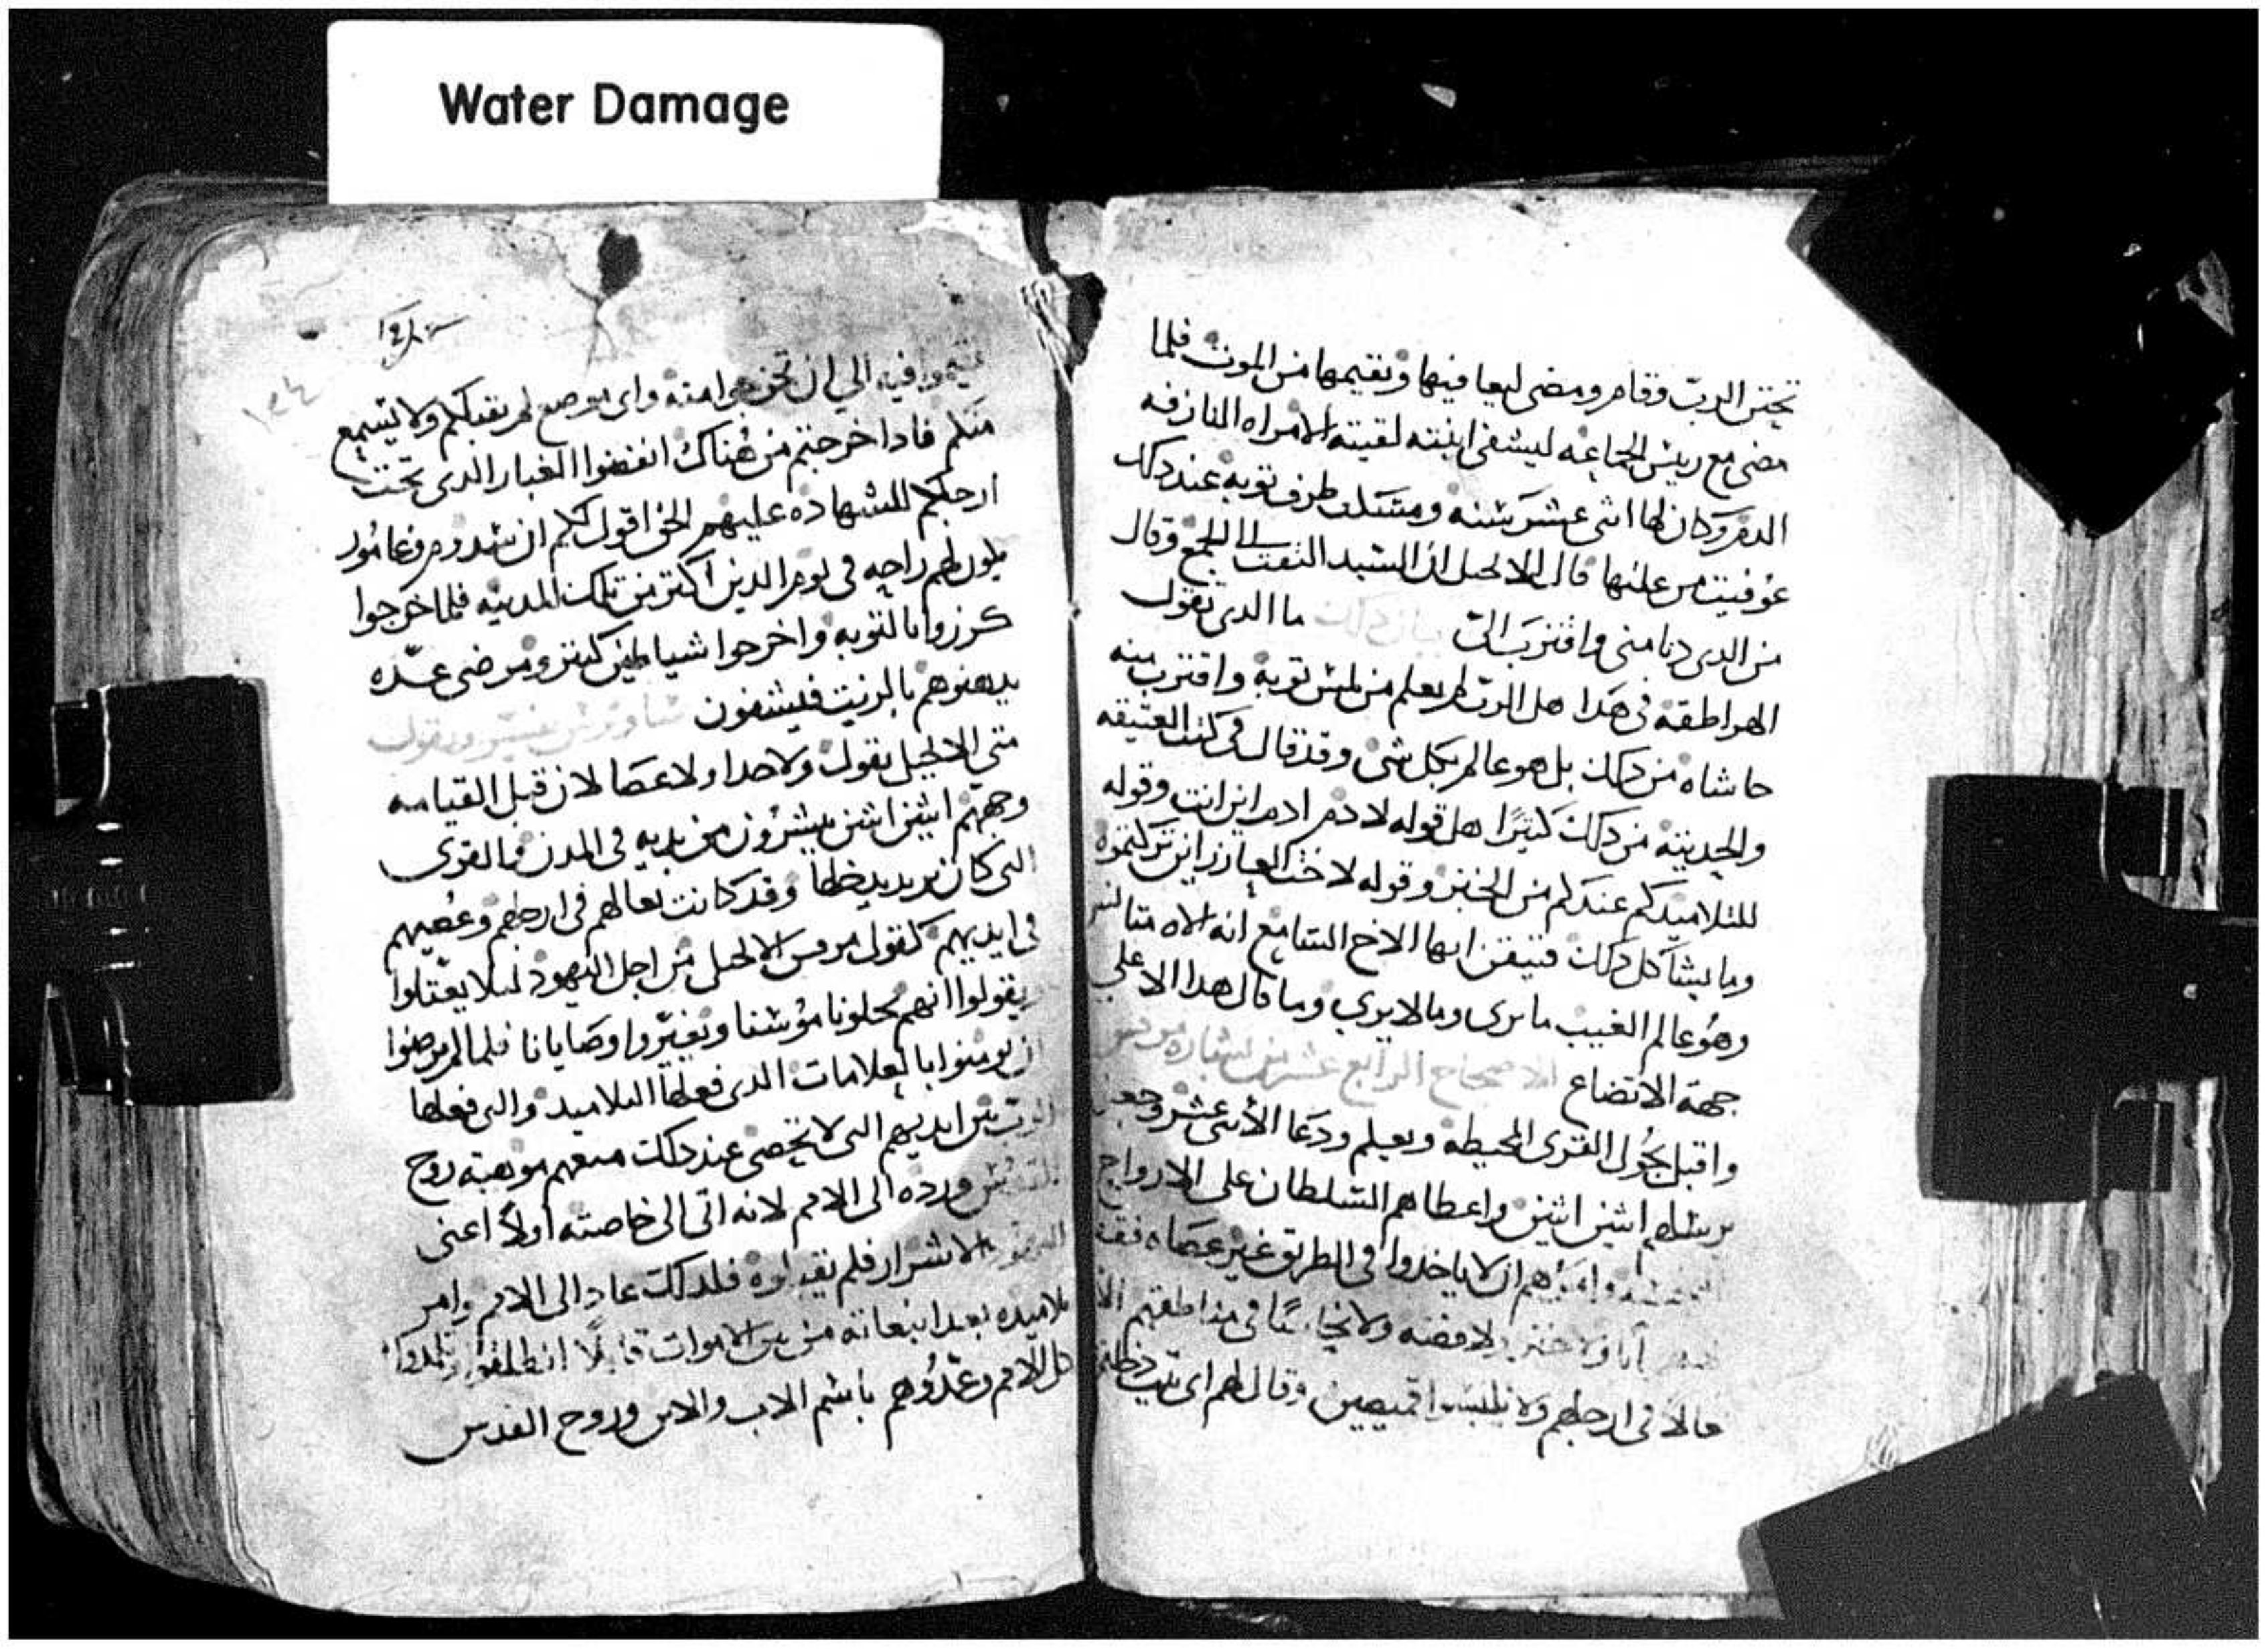 Water Damage
تحنن الرب وقام ومضى ليعافيها ويقيمها من الموت فلما
مضى مع ريس الجماعه ليشفى ابنته لقيته الامراه النازفه
الدم وكان لها اثنى عشر سنه ومسكت طرف ثوبه عند دلك
عوفيت من علتها قال الانجيل ان السيد التفت الى الجمع وقال
من الدى دنا منى واقترب الىّ بيان دلك ما الدى تقول
الهراطقه فى هدا هل الرب لم يعلم من لمس ثوبه واقترب منه
حاشاه من دلك بل هو عالم بكل شى وقد قال فى كتب العتيقه
والحديثه من دلك كثيرًا هل قوله لادم ادم اين انت وقوله
للتلاميد كم عندكم من الخبز وقوله لاخت العازر اين تركتموه
وما يشاكل دلك فتيقن ايها الاخ السامع انه الاه متانس
وهو عالم الغيب ما يرى وما لا يرى وما قال هدا الا على
جهة الاتضاع الاصحاح الرابع عشر من بشاره مرقس
واقبل يجول القرى المحيطه ويعلم ودعا الاثنى عشر وجعل
يرسلهم اثنين اثنين واعطاهم السلطان على الارواح
وامرهم ان لا ياخدوا فى الطريق غير عصاه فقط
ولا خبز ولا فضه ولا نحاسًا فى مناطقهم الا
نعالا فى ارجلهم ولا يلبسوا قميصين وقال لهم اى بيت دخلتم
فيه الي ان تخرجوا منه واى موضع لم يقبلكم ولا يسمع
منكم فادا خرجتم من هُناك انفضوا الغبار الدى تحت
ارجلكم للشهاده عليهم الحق اقول لكم ان سدوم وغامُورا
يكون لهم راحه فى يوم الدين اكتر من تلك المدينه فلما خرجوا
كرزوا بالتوبه واخرجوا شياطين كتيره ومرضى عدّه
يدهنوهم بالزيت فيشفون
متى الانجيل يقول ولا حدا ولا عصا لان قبل القيامه
وجههم اثنين اثنين يبشرون من يديه فى المدن والقرى
التى كان يريد يدخلها وقد كانت نعالهم فى ارجلهم وعُصيهم
فى ايديهم كقول مرقس الانجيلى من اجل اليهود ليلا يعتلوا
يقولوا انهم يحلونا موسنا ويغيّروا وصايانا فلما لم يرضوا
ان يومنوا بالعلامات الدى فعلها التلاميد والتى فعلها
الرب بين ايديهم التى لا تحصى عند دلك منعهم موهبة روح
القدس ورده الى الامم لانه اتى الى خاصته اولًا اعنى
اليهود الاشرار فلم يقبلوه فلدلك عاد الى الامم وامر
تلاميده بعد انبعاثه من بين الاموات قايلًا انطلقوا وتلمدوا
كل الامم وعمدُوهم باسم الاب والابن وروح القدس